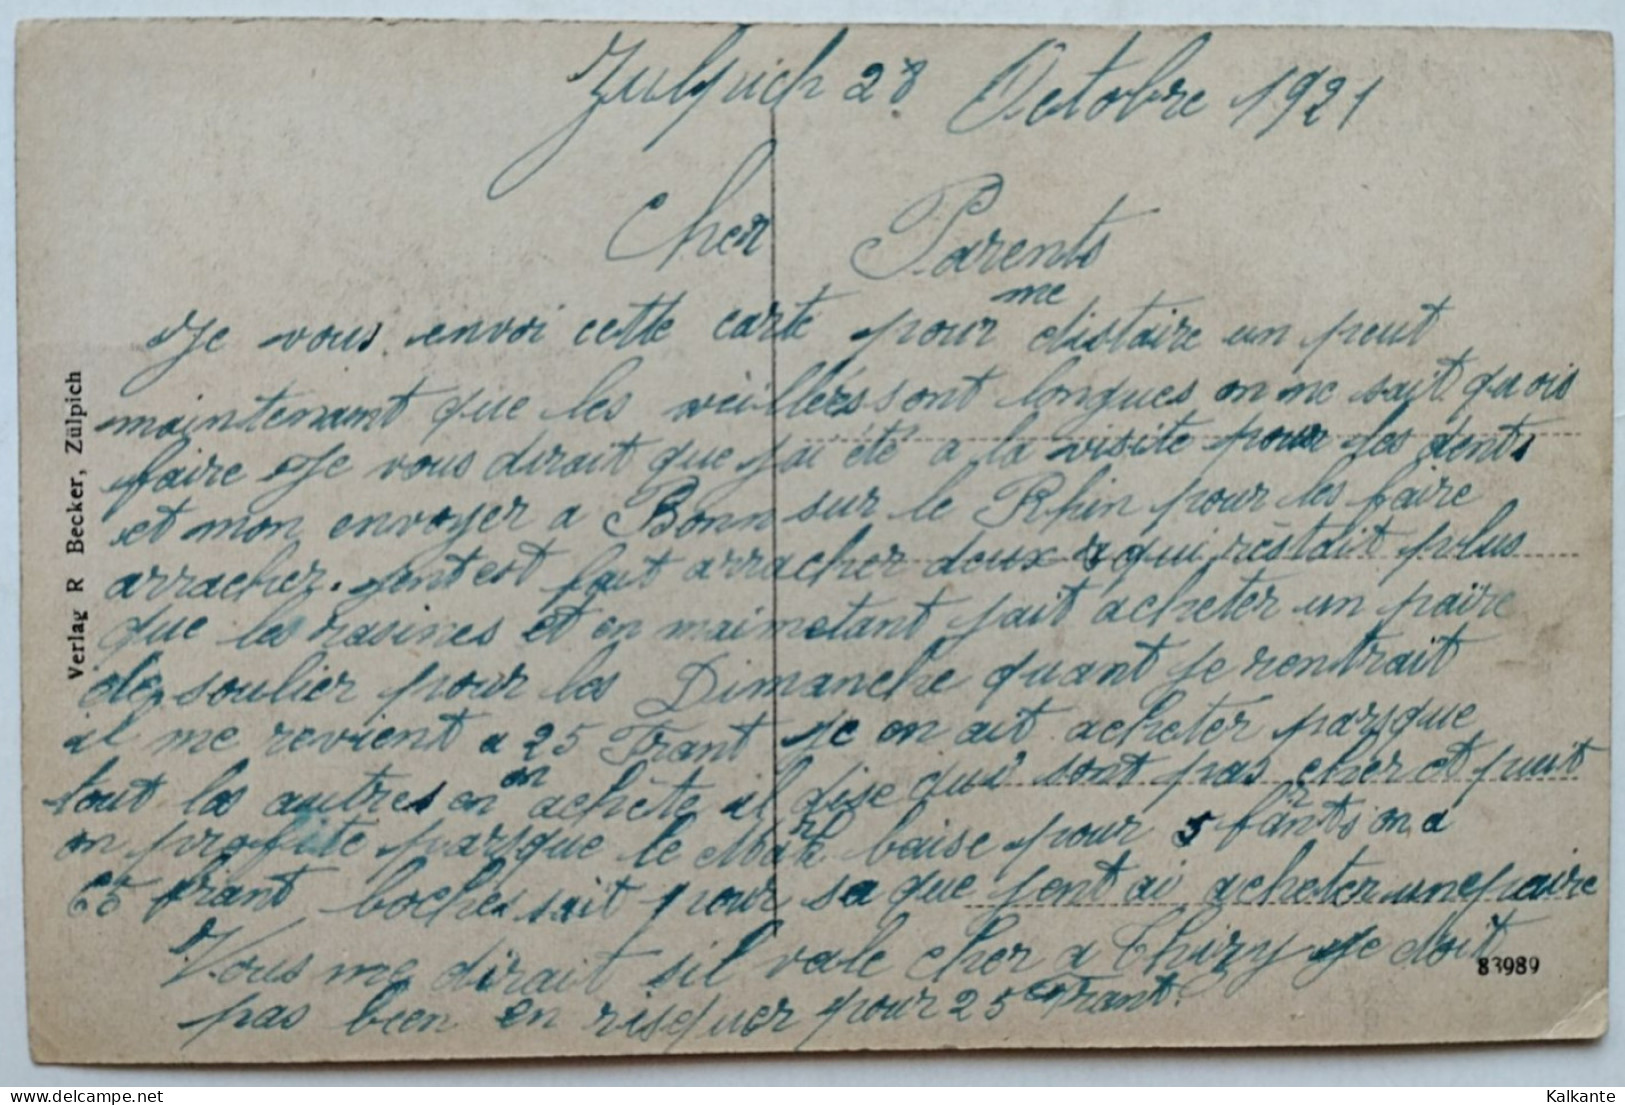 Zulpich 28 Octobre 1921
Cher Parents
Je vous envoi cette carte pour me distaire un peut
maintenant que les veillérs sont longues on ne sait quois
faire Je vous dirait que j'ai été a la visite pour les dents
et mon envoyer a Bonn sur le Rhin pour les faire
arracher. fait arracher deux qui réstait plus
que les rasines et en maimetant fait acheter un paire
de soulier pour les Dimanche quant je rentrait
il me revient a 25 Frant je on ait acheter parsque
tout les autres on on achéte il dise qui sont pas cher et puit
on profite parsque le Mark baise pour 5 frants on a
65 frant boches sait pour sa que jent ai acheter une paire
Vous me dirait sil vale cher a Thizy Je doit
pas bien en risquer pour 25 Frant.
Verlag R Becker, Zülpich
83989
Kalkante